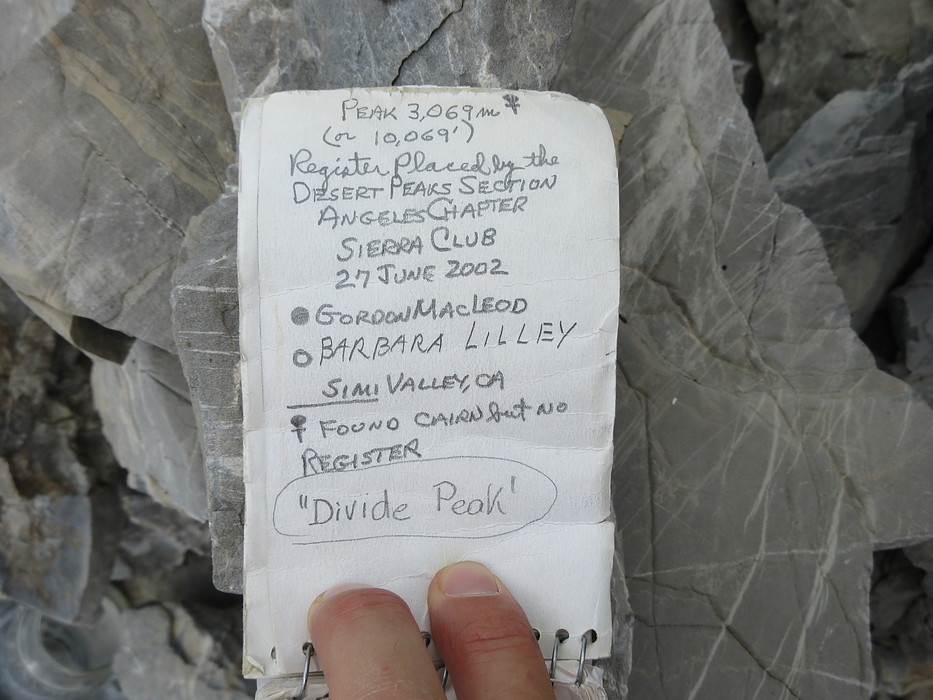 PEAK 3,069m
(or 10,069')
Register Placed by the
DESERT PEAKS SECTION
ANGELES CHAPTER
SIERRA CLUB
27 JUNE 2002
GORDON MACLEOD
BARBARA LILLEY
SIMI VALLEY, CA
FOUND CAIRN but NO
REGISTER
"Divide Peak'